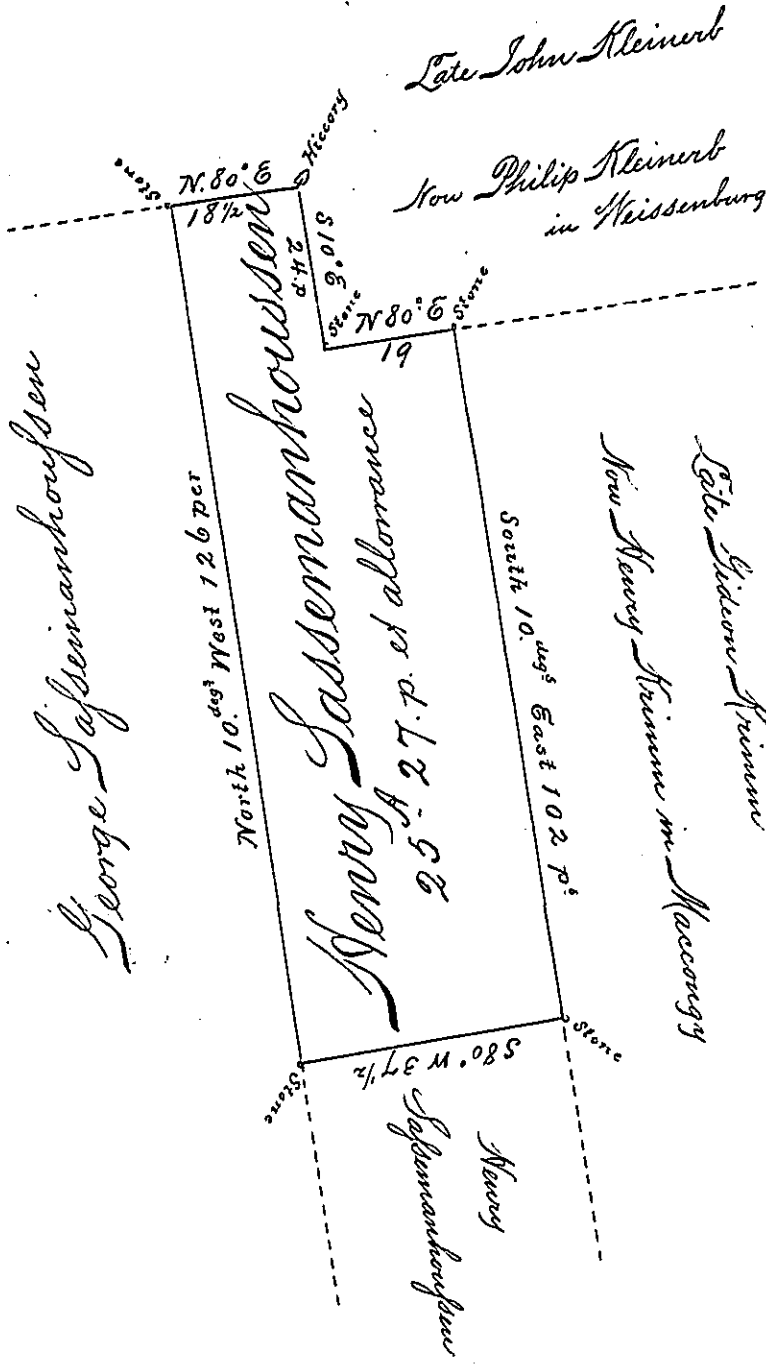 Late John Kleinerb
Now Philip Kleinerb
in Weissenburg
Stone
N. 80° E
18½
Hiccory
S10° E
24 p
Stone
N 80° E
19
Stone
George Saſsemanhouſsen
North 10. degs West 126 per
Henry Sassemanhoussen
25A - 27. p. et allowance
South 10. degs East 102 ps
Late Gideon Krimm
Now Henry Krimm in Maccongy
Stone
S80° W 37½
Stone
Henry
Saſsemanhouſsen